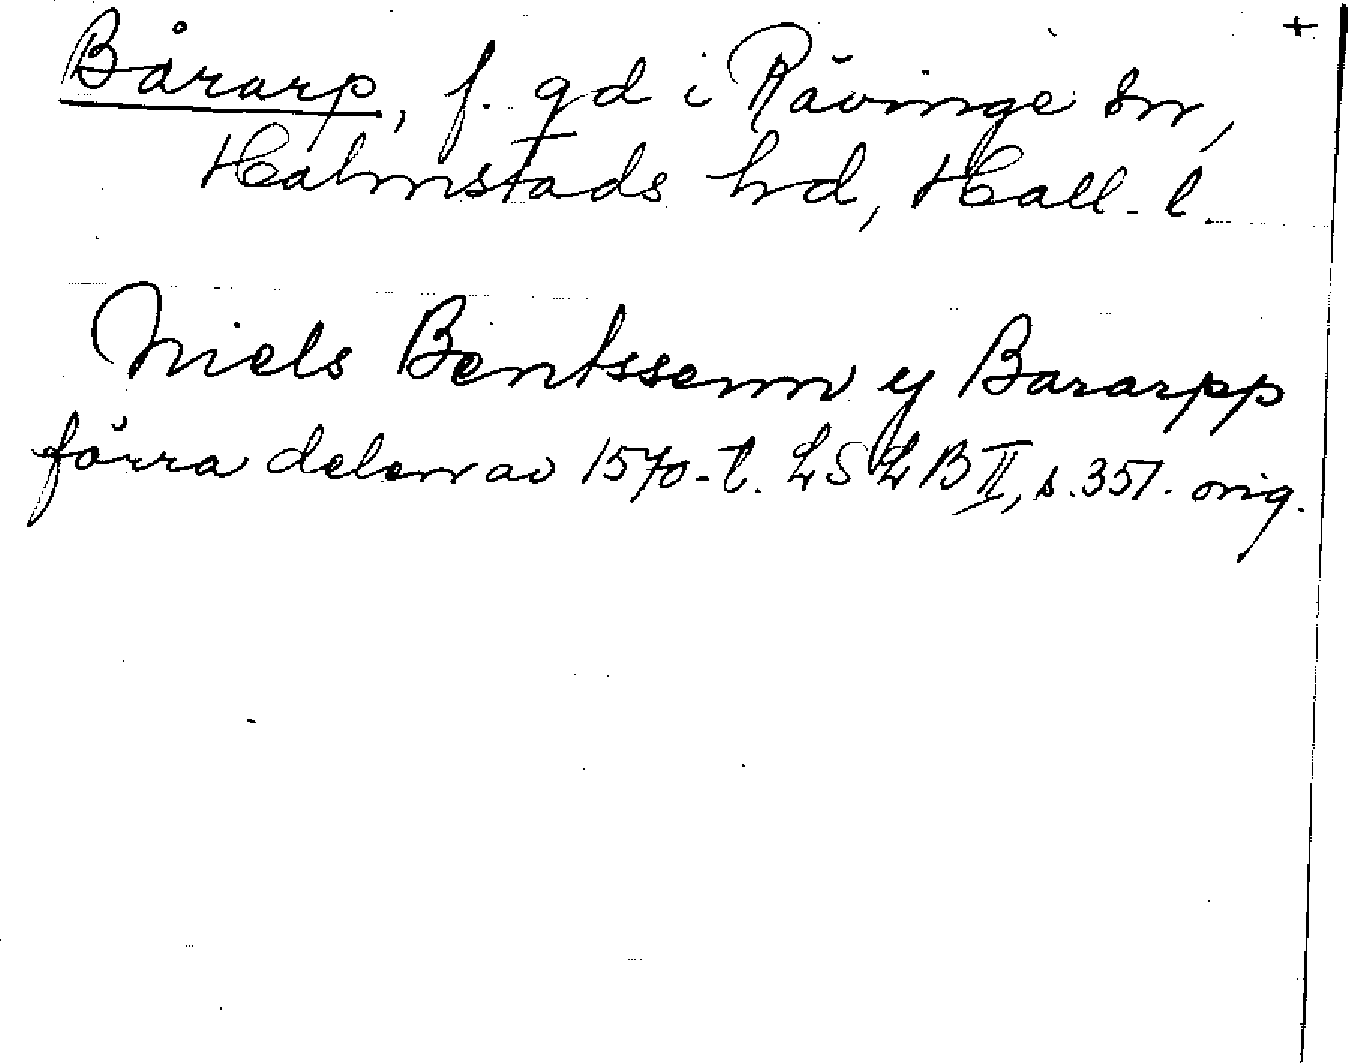 +
Bårarp, f. gd i Rävinge sn,
Halmstads hd, Hall. l.
Niels Bentssenn y Bararpp
förra delen av 1570-t. LSLB II, s. 351. orig.